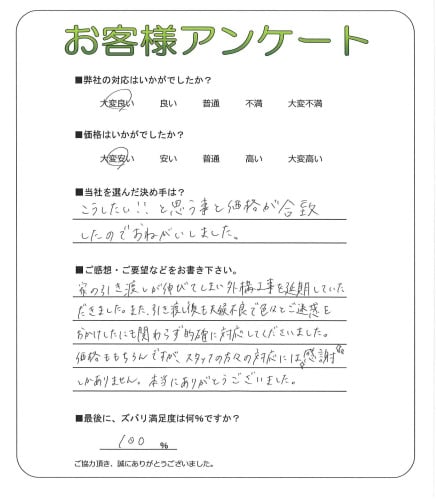 お客様アンケート
■弊社の対応はいかがでしたか？
大変良い 良い 普通 不満 大変不満
■価格はいかがでしたか？
大変安い 安い 普通 高い 大変高い
■当社を選んだ決め手は？
こうしたい!! と思う事と価格が合致
したのでおねがいしました。
■ご感想・ご要望などをお書き下さい。
家の引き渡しが伸びてしまい外構工事を延期していた
だきました。また、引き渡し後も天候不良で色々とご迷惑を
おかけしたにも関わらず的確に対応してくださいました。
価格ももちろんですが、スタッフの方々の対応には感謝
しかありません。本当にありがとうございました。
■最後に、ズバリ満足度は何％ですか？
100 %
ご協力頂き、誠にありがとうございました。